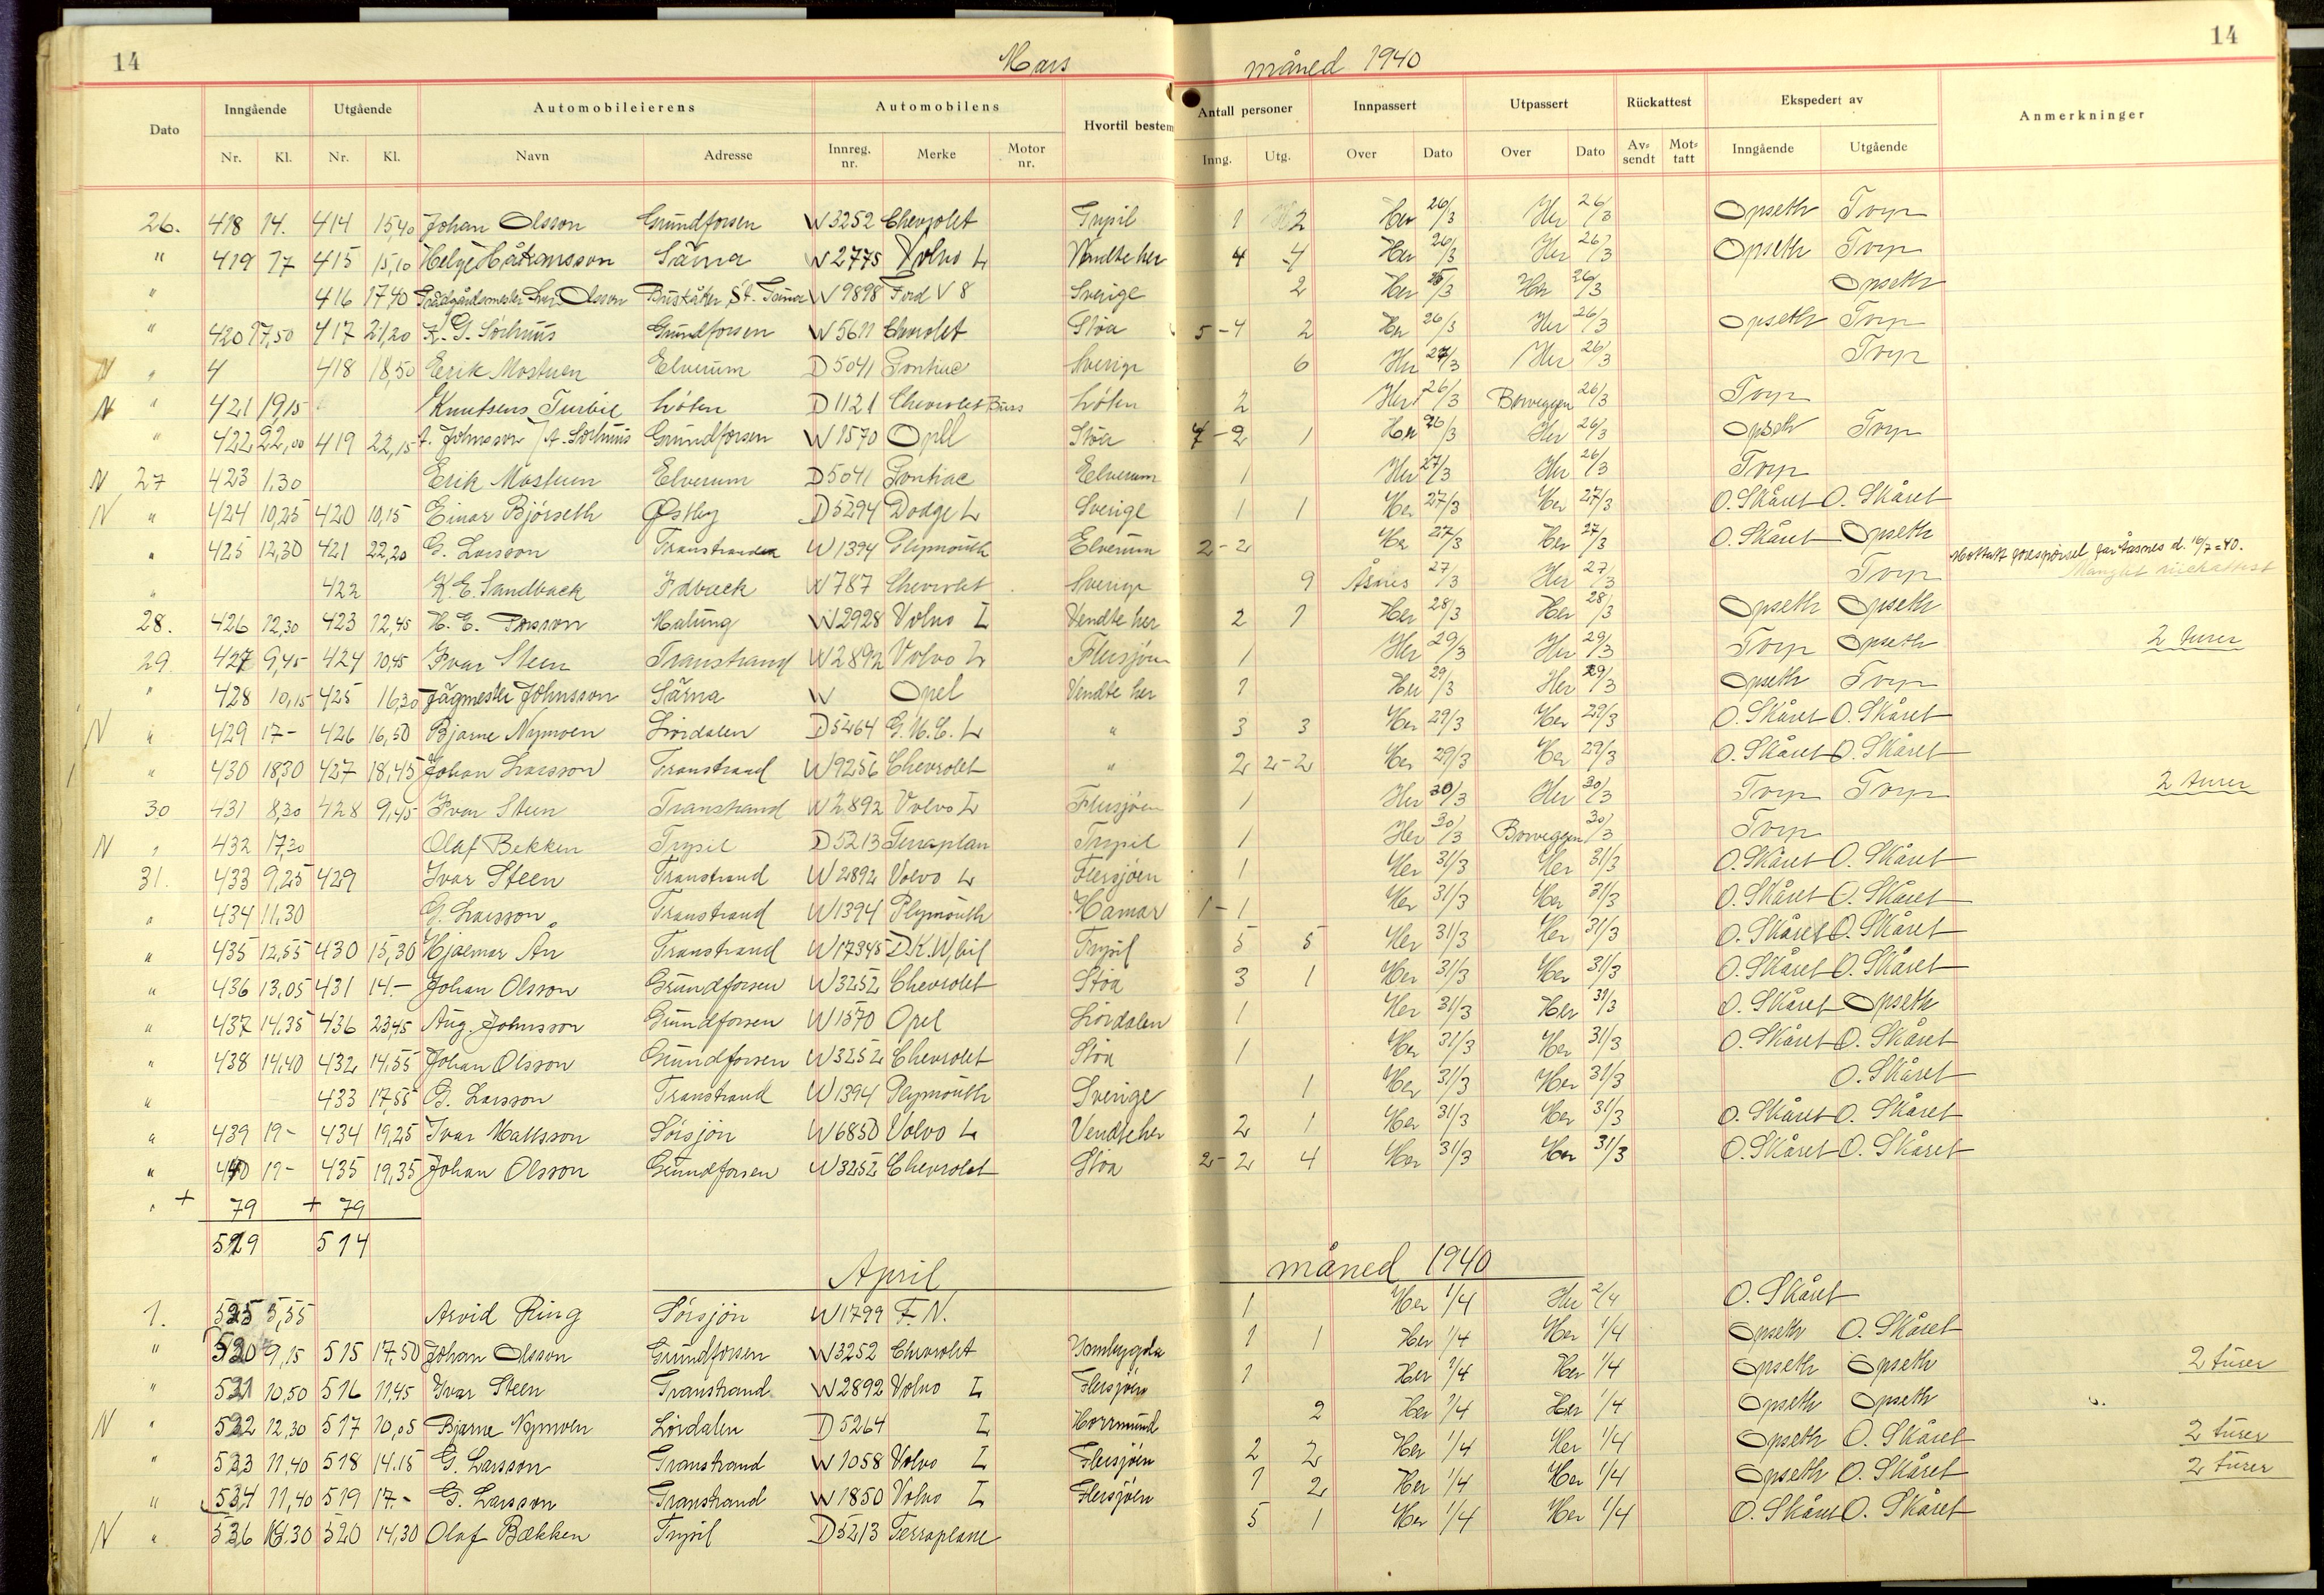 14 Mars måned 1940 14
Dato Inngående Utgående Automobileierens Automobilens Hvortil bestem Antall personer Innpassert Utpassert Rückattest Ekspedert av Anmerkninger
Nr. Kl. Nr. Kl. Navn Adresse Innreg. nr. Merke Motor nr. Inng. Utg. Over Dato Over Dato Av-sendt Mot-tatt Inngående Utgående
26. 418 14. 414 15,40 Johan Olsson Grundforsen W 3252 Chevrolet Trysil 1 2 Her 26/3 Her 26/3 Opseth Torp
" 419 17 415 15,10 Helge Håkansson Särna W 2775 Volvo L Vendte her 4 4 Her 26/3 Her 26/3 Opseth Torp
" 416 17 40 Olsson W 9898 Ford V 8 Sverige 2 Her /3 Her 26/3 Opseth
" 420 17,50 417 21,20 K. G. Sörhuus Grundforsen W 5611 Chevrolet Støa 5-4 2 Her 26/3 Her 26/3 Opseth Torp
N " 4 418 18,50 Erik Mostuen Elverum D 5041 Pontiac Sverige 6 Her 27/3 Her 26/3 Torp
N " 421 19,15 Knutsens Turbil Löten D 1121 Chevrolet Buss Löten 2 Her 26/3 Borveggen 26/3 Torp
" 422 22,00 419 22,15 A. Johnsson / A. Sörhuus Grundforsen W 1570 Opel Støa 4-2 1 Her 26/3 Her 26/3 Opseth Torp
N 27 423 1.30 Erik Mostuen Elverum D 5041 Pontiac Elverum 1 Her 27/3 Her 26/3 Torp
N " 424 10,25 420 10,15 Einar Bjørseth Østby D 5294 Dodge L Sverige 1 1 Her 27/3 Her 27/3 O. Skåret O. Skåret
" 425 12,30 421 22,20 G. Larsson Transtrand W 1394 Plymouth Elverum 2-2 Her 27/3 Her 27/3 O. Skåret Opseth
" 422 K. E. Sandback Idbäck W 787 Chevrolet Sverige 9 Åsnes 27/3 Her 27/3 Torp Mottatt forespørsel far Åsnes d. 16/7-40. Manglet rückattest
28. 426 12,30 423 12,45 H. E. Persson Malung W 2928 Volvo L Vendte her 2 1 Her 28/3 Her 28/3 Opseth Opseth
29. 427 9,45 424 10,45 Ivar Steen Transtrand W 2892 Volvo L Flersjøen 1 Her 29/3 Her 29/3 Torp Opseth 2 turer
" 428 10,15 425 16,30 Jägmester Johnsson Särna W Opel Vendte her 1 Her 29/3 Her 29/3 Opseth Torp
N " 429 17- 426 16,50 Bjarne Nymoen Lördalen D 5264 G. M. C. L " 3 3 Her 29/3 Her 29/3 O. Skåret O. Skåret
" 430 18,30 427 18,45 Johan Larsson Transtrand W 9256 Chevrolet " 2 2-2 Her 29/3 Her 29/3 O. Skåret O. Skåret
30 431 8,30 428 9,45 Ivar Steen Transtrand W 2892 Volvo L Flersjøen 1 Her 30/3 Her 30/3 Torp Torp 2 turer
N " 432 17,30 Olaf Bekken Trysil D 5213 Terraplan Trysil 1 Her 30/3 Borveggen 30/3 Torp
31. 433 9,25 429 Ivar Steen Transtrand W 2892 Volvo L Flersjøen 1 Her 31/3 Her 31/3 O. Skåret O. Skåret
" 434 11.30 G. Larsson Transtrand W 1394 Plymouth Hamar 1-1 Her 31/3 Her 31/3 O. Skåret O. Skåret
" 435 12,55 430 15,30 Hjalmar Ån Transtrand W 17345 D.K.W. bil Trysil 5 5 Her 31/3 Her 31/3 O. Skåret O. Skåret
" 436 13,05 431 14.- Johan Olsson Grundforsen W 3252 Chevrolet Støa 3 1 Her 31/3 Her 31/3 O. Skåret O. Skåret
" 437 14,35 436 23,45 Aug. Johnsson Grundforsen W 1570 Opel Lördalen 1 Her 31/3 Her 31/3 O. Skåret Opseth
" 438 14,40 432 14,55 Johan Olsson Grundforsen W 3252 Chevrolet Støa 1 Her 31/3 Her 31/3 O. Skåret O. Skåret
" 433 17,55 G. Larsson Transtrand W 1394 Plymouth Sverige 1 Her 31/3 Her 31/3 O. Skåret
" 439 19- 434 19,25 Ivar Mattsson Sörsjön W 6850 Volvo L Vendte her 2 1 Her 31/3 Her 31/3 O. Skåret O. Skåret
" 440 19- 435 19,35 Johan Olsson Grundforsen W 3252 Chevrolet Støa 2-2 4 Her 31/3 Her 31/3 O. Skåret O. Skåret
" + 79 + 79
519 514
April måned 1940
1. 525 5,55 Arvid Ring Sörsjön W 1799 F. N. 1 Her 1/4 Her 2/4 O. Skåret
" 520 9,15 515 17,50 Johan Olsson Grundforsen W 3252 Chevrolet 1 1 Her 1/4 Her 1/4 Opseth O. Skåret
" 521 10,50 516 11,45 Ivar Steen Transtrand W 2892 Volvo L Flersjøen 1 Her 1/4 Her 1/4 Opseth Opseth 2 turer
N " 522 12,30 517 10,05 Bjarne Nymoen Lördalen D 5264 L Horrmund 2 Her 1/4 Her 1/4 Opseth Opseth
" 523 11,40 518 14.15 G. Larsson Transtrand W 1058 Volvo L Flersjøen 2 2 Her 1/4 Her 1/4 Opseth O. Skåret 2 turer
" 524 11,40 519 17- G. Larsson Transtrand W 1850 Volvo L Flersjøen 1 2 Her 1/4 Her 1/4 Opseth O. Skåret 2 turer
N " 526 16.30 520 14,30 Olaf Bækken Trysil D 5213 Terraplane 5 1 Her 1/4 Her 1/4 O. Skåret O. Skåret